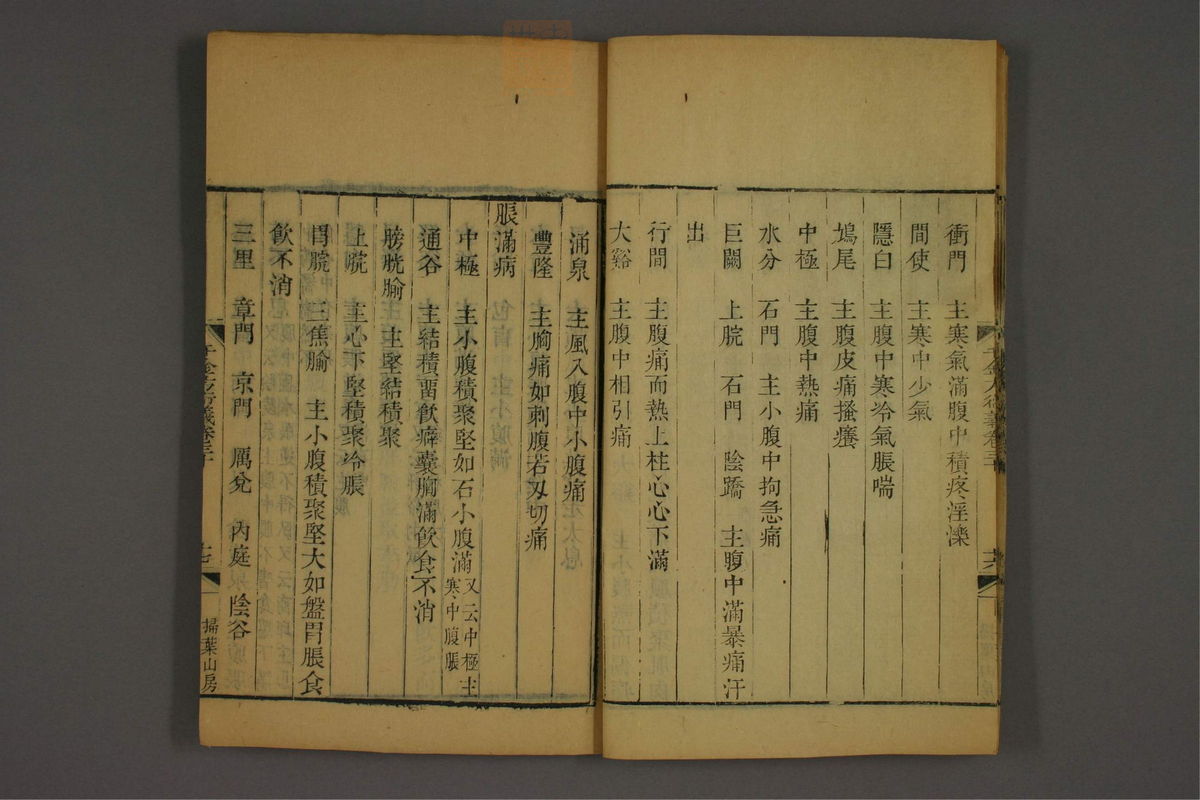 衝門　主寒氣滿腹中積疼淫濼
間使　主寒中少氣
隱白　主腹中寒冷氣脹喘
鳩尾　主腹皮痛搔癢
中極　主腹中熱痛
水分　石門　主小腹中拘急痛
巨闕　上脘　石門　陰蹻　主腹中滿暴痛汗
出
行間　主腹痛而熱上柱心心下滿
大谿　主腹中相引痛
涌泉　主風入腹中小腹痛
豐隆　主胸痛如刺腹若刄切痛
脹滿病
中極　主小腹積聚堅如石小腹滿又云中極主寒中腹脹
通谷　主結積畱飲癖囊胸滿飲食不消
膀胱腧　主堅結積聚
上脘　主心下堅積聚冷脹
胃脘　三焦腧　主小腹積聚堅大如盤胃脹食
飲不消
三里　章門　京門　厲兌　內庭　陰谷
千金方衍義卷三十
十七
掃葉山房